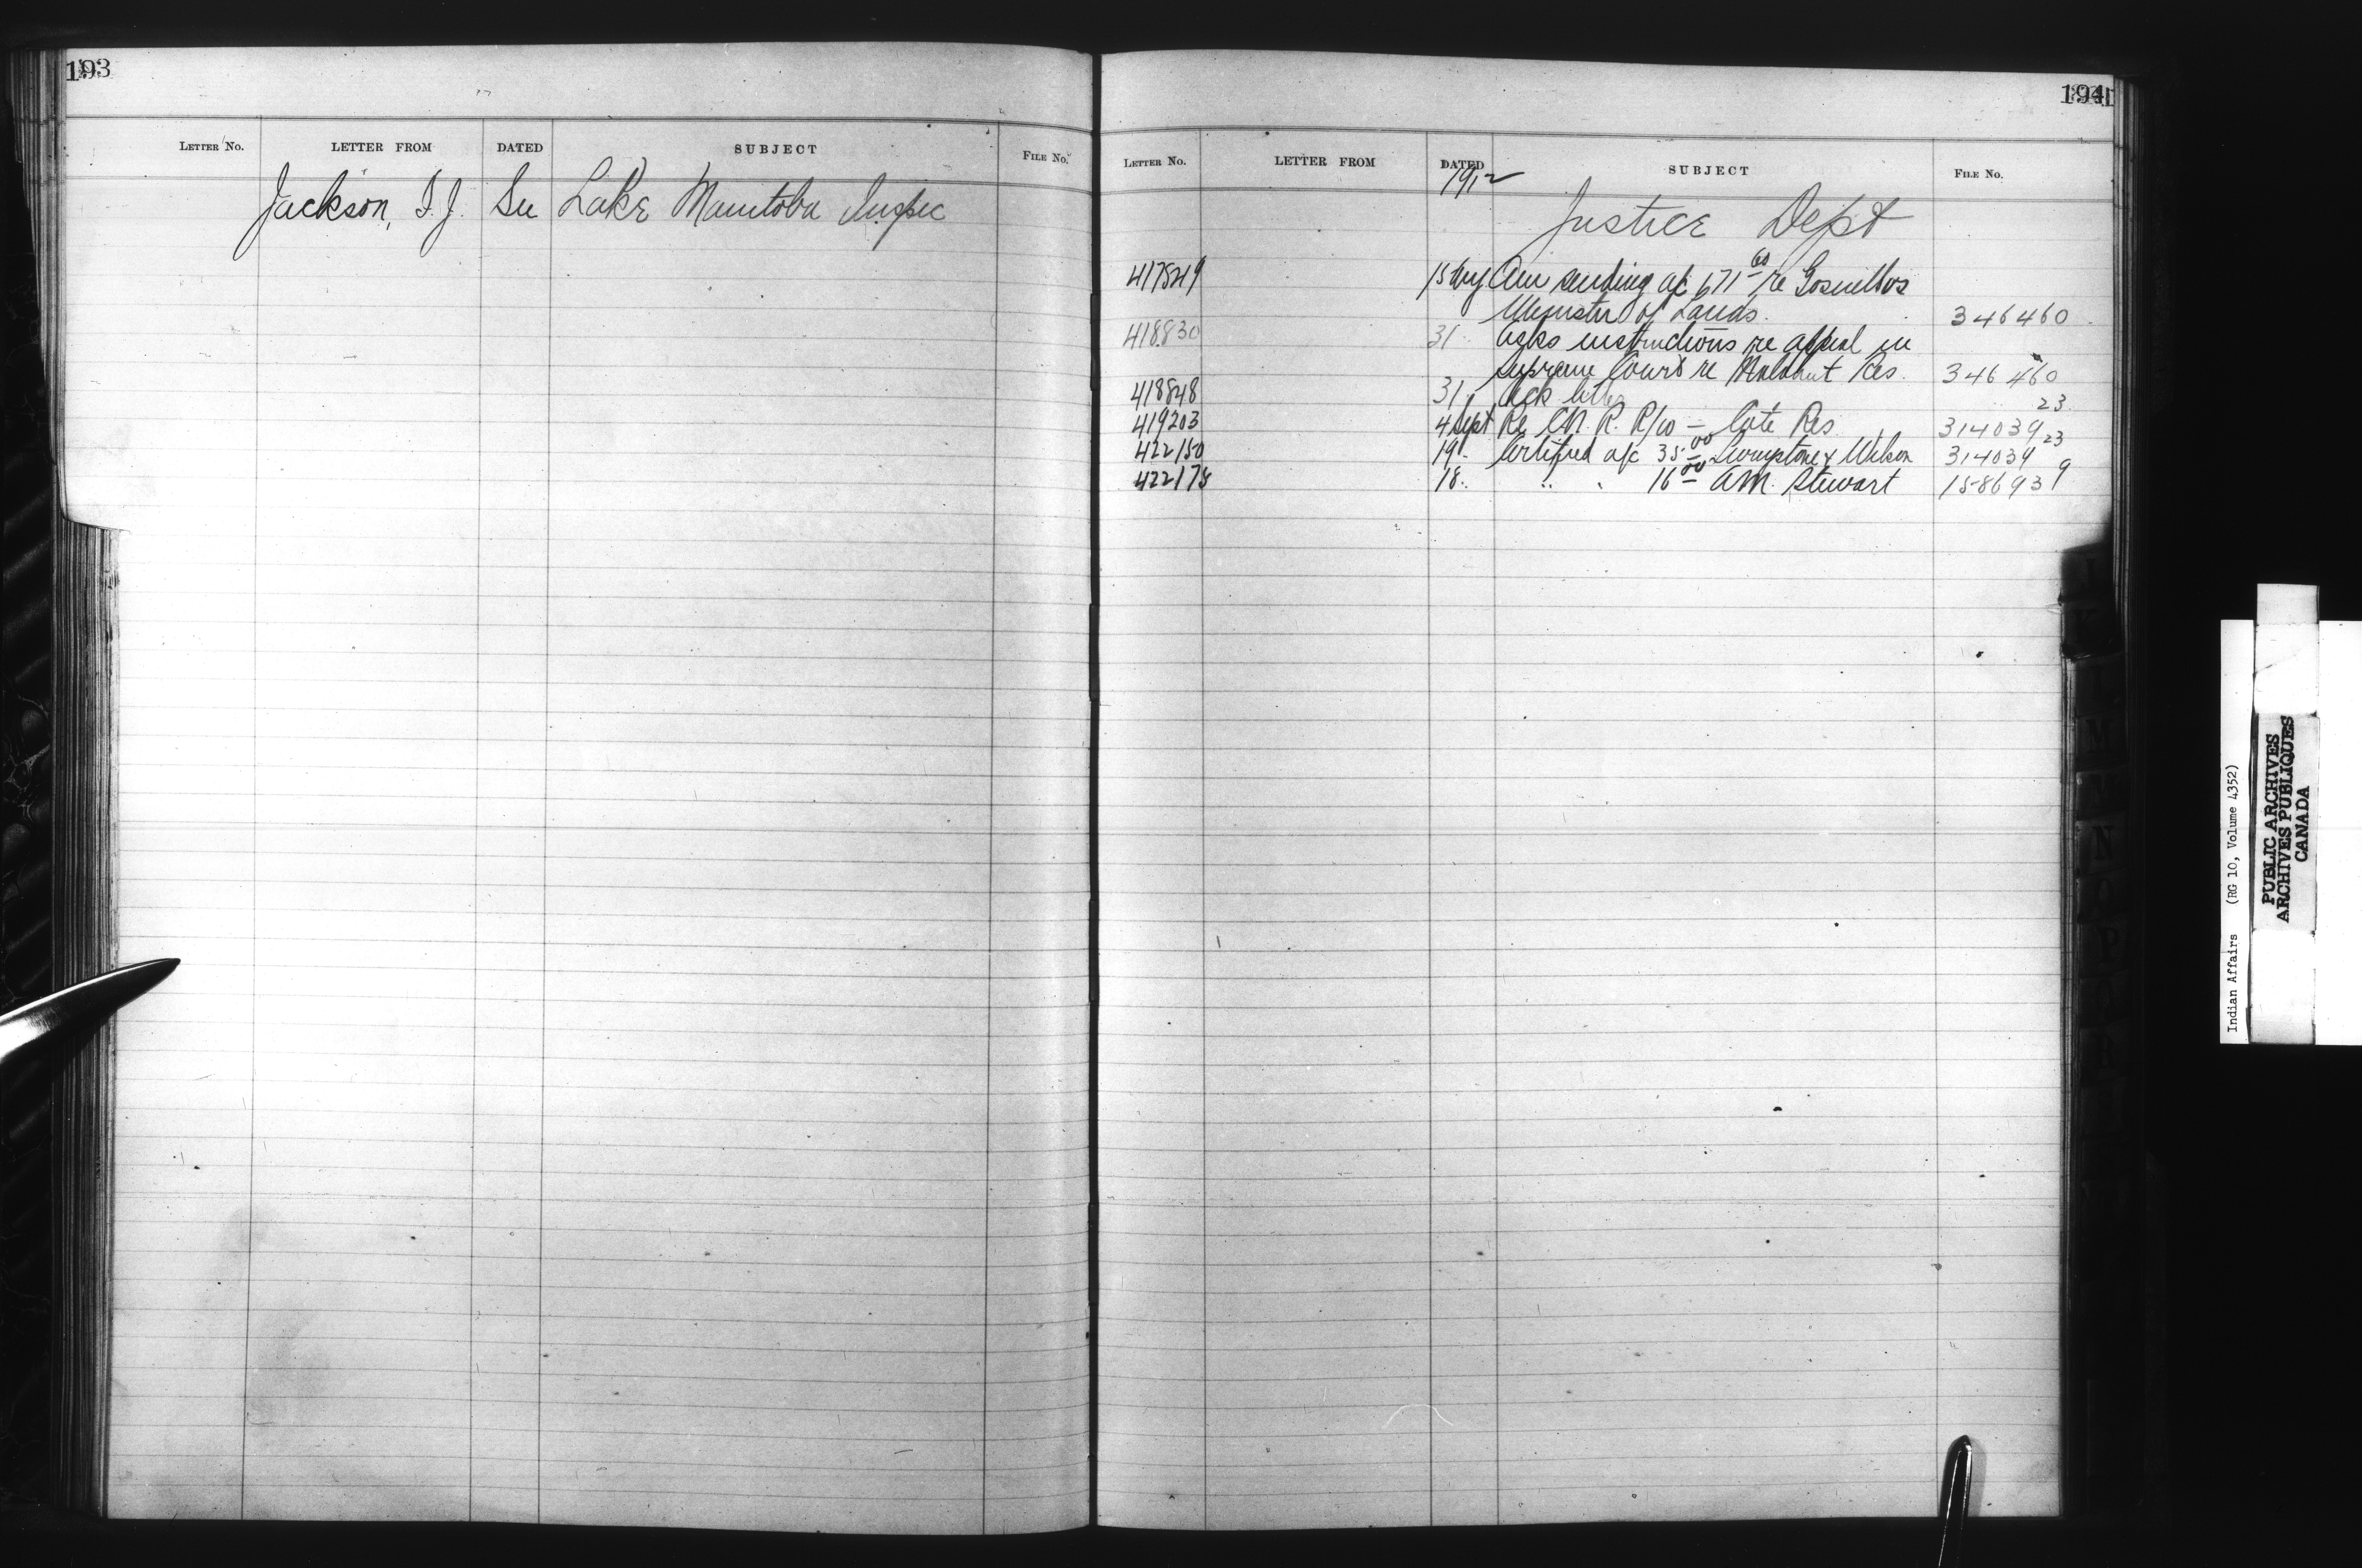 193
LETTER No. LETTER FROM DATED SUBJECT FILE No.
Jackson, S. J. See Lake Manitoba Inspec
194
LETTER No. LETTER FROM DATED SUBJECT FILE No.
1912
Justice Dept
417549 15 Aug Am sending a/c 671 60 re Gosnell vs
Minister of Lands. 346460
418830 31 Asks instructions re appeal in
Supreme Court re Malahat Res. 346460
418848 31 Ack letter 23
419203 4 Sept Re C.N.R. R/W — Cote Res 314039 23
422150 19 Certified a/c 35 00 & Wilson 314039
422175 18 " " 16 00 A.M. Stewart 158693 9
J
K
L
M
N
O
P
Q
R
Indian Affairs (RG 10, Volume 4352)
PUBLIC ARCHIVES
ARCHIVES PUBLIQUES
CANADA